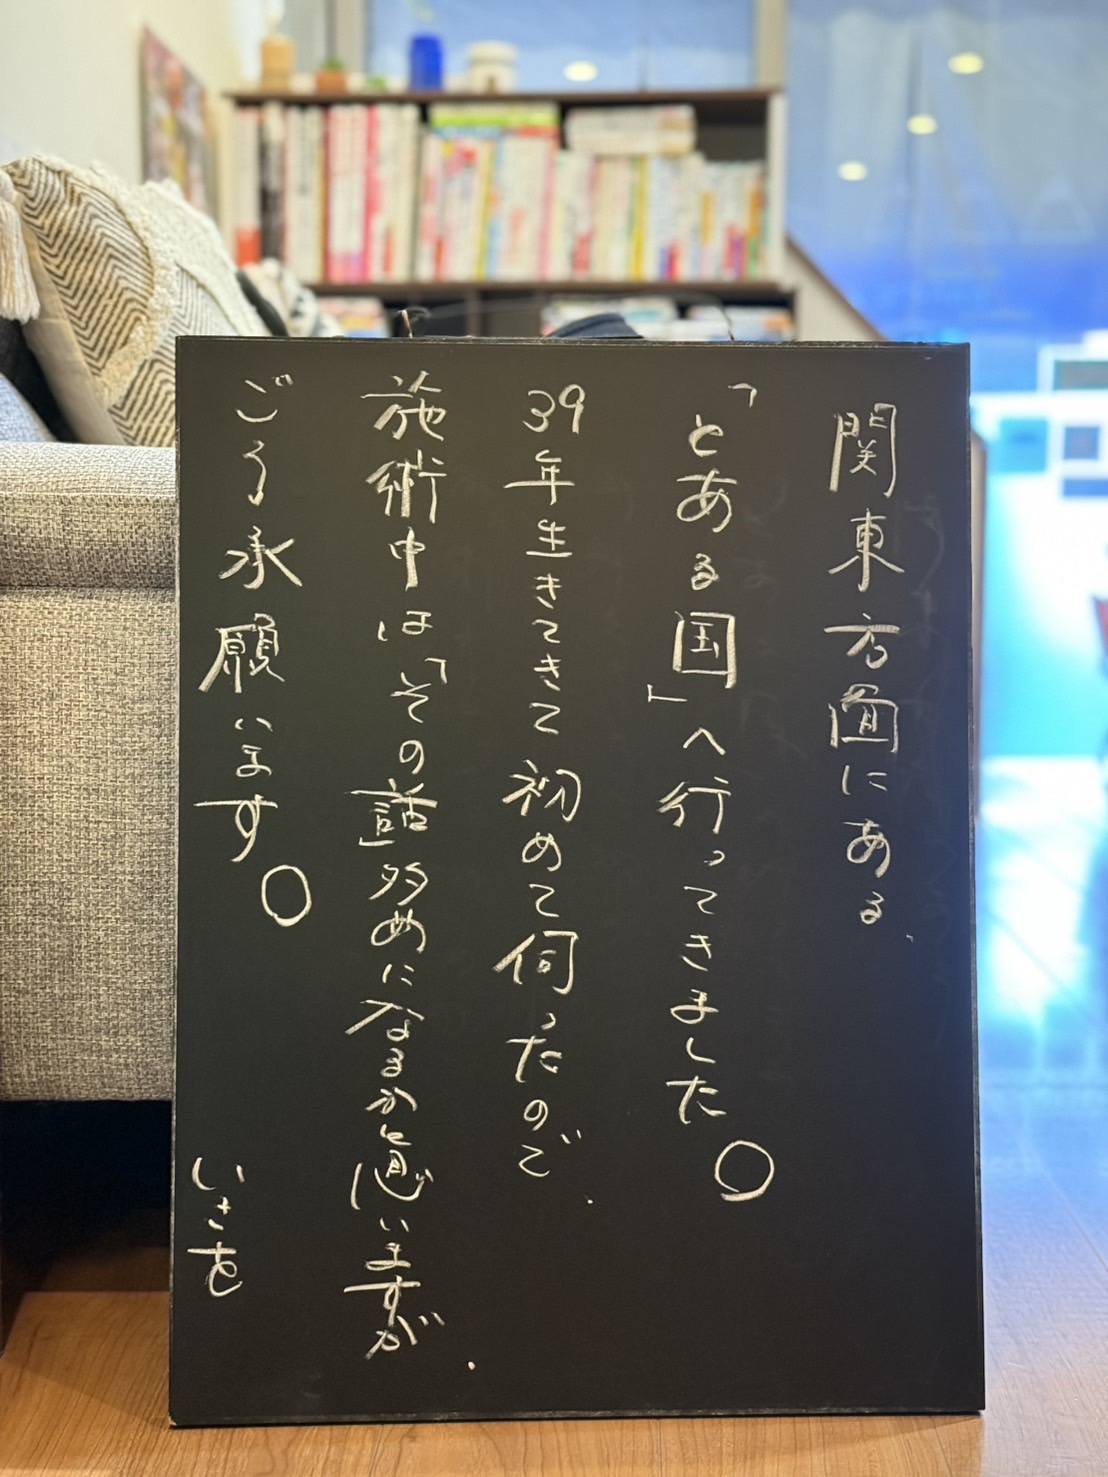 関東方面にある、
「とある国」へ行ってきました。
39年生きてきて初めて伺ったので、
施術中は「その話」多めになるかと思いますが、
ごう承願います。
いさを